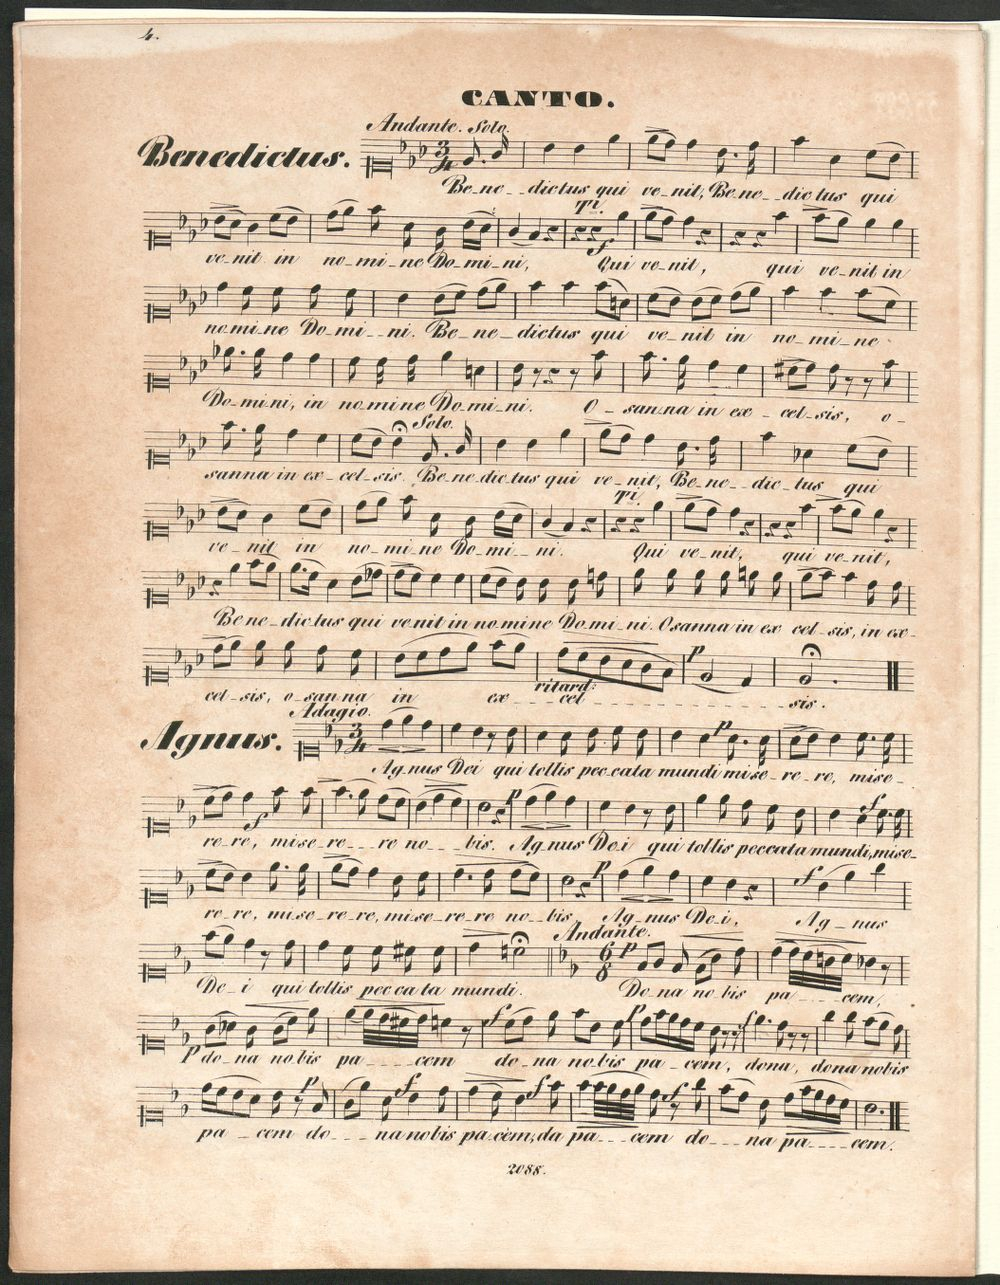 4.
CANTO.
Andante. Solo.
Benedictus.
Be_ne_ _dictus qui ve_nit, Be_ne_ _dic tus qui
Ti
ve_nit in no_mi_ne Do_mi_ni, Qui ve_nit, qui ve_nit in
no_mi_ne Do_mi_ _ni. Be_ne_ _dictus qui ve_nit in no_mi_ne
Do_mi_ni, in no_mi_ne Do_mi_ni. O_san_na in ex_cel_sis, o_
Solo.
sanna in ex_cel_sis. Be_ne_dic_tus qui ve_nit, Be_ne_ _dic_tus qui
Ti.
ve_nit in no_mi_ne Do_mi_ _ni. Qui ve_nit, qui ve_nit,
Be ne_dic_tus qui ve_nit in no_mine Do_mi_ni. Osanna in ex cel_sis, in ex_
p
cel_sis, o_san_na in ex_ _ _cel_ _ _ _ _ _ _ _ _ _ sis.
ritard:
Adagio.
Agnus.
p
Ag_nus Dei qui tollis pec_cata mundi mi_se_re_re, mise_
f p f
re_re, mi_se_re_ _ _re no_ _bis. Ag_nus De_i qui tollis peccata mundi, mise_
p f
re_re, mi_se_re_re, mi_se_re_re no_bis, Ag_nus De_i, Ag_nus
Andante.
p
De_i qui tollis pec_ca_ta mundi. Do_na no_bis pa_ _ _ _cem,
f p f
p do_na no_bis pa_ _ _cem do_na no_bis pa_cem, dona, dona nobis
p f f f
pa_cem do_ _ _na nobis pa_cem, da pa_ _ _cem do_ _ _na pa_ _ _cem.
2088.